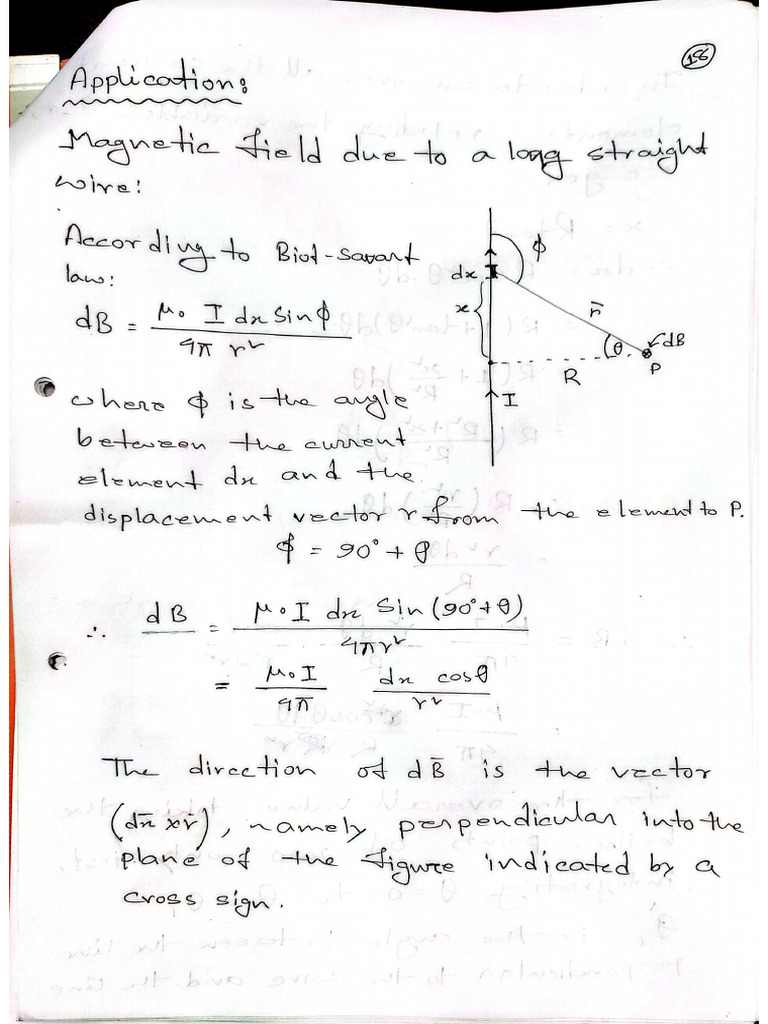 156
Application:
Magnetic field due to a long straight
wire:
According to Biot-Savart
law:
dB = μ₀ I dx Sinϕ / 4π r²
ϕ
dx
x
r̄
θ
dB
P
R
I
where ϕ is the angle
between the current
element dx and the
displacement vector r from the element to P.
ϕ = 90° + θ
∴ dB = μ₀ I dx Sin (90° + θ) / 4π r²
= μ₀ I / 4π dx cosθ / r²
The direction of dB̄ is the vector
(dx̄ × r̄), namely perpendicular into the
plane of the figure indicated by a
cross sign.